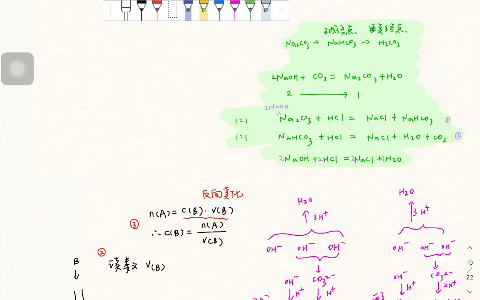 Na₂CO₃ → NaHCO₃ → H₂CO₃
2NaOH + CO₂ = Na₂CO₃ + H₂O
2 → 1
2NaOH
1:1 Na₂CO₃ + HCl = NaCl + NaHCO₃ ①
1:1 NaHCO₃ + HCl = NaCl + H₂O + CO₂ ②
2NaOH + 2HCl = 2NaCl + 2H₂O
② n(A) = C(B) · V(B)
∴ C(B) = n(A) / V(B)
B ↓
③ 读数 V(B)
H₂O
↑ 3H⁺
OH⁻ OH⁻ OH⁻
↓
OH⁻ CO₃²⁻
↓ H⁺
H₂O
↑ 3H⁺
OH⁻ OH⁻ OH⁻
↓
OH⁻ CO₃²⁻
↓ H⁺ ↓ 2H⁺
19
22